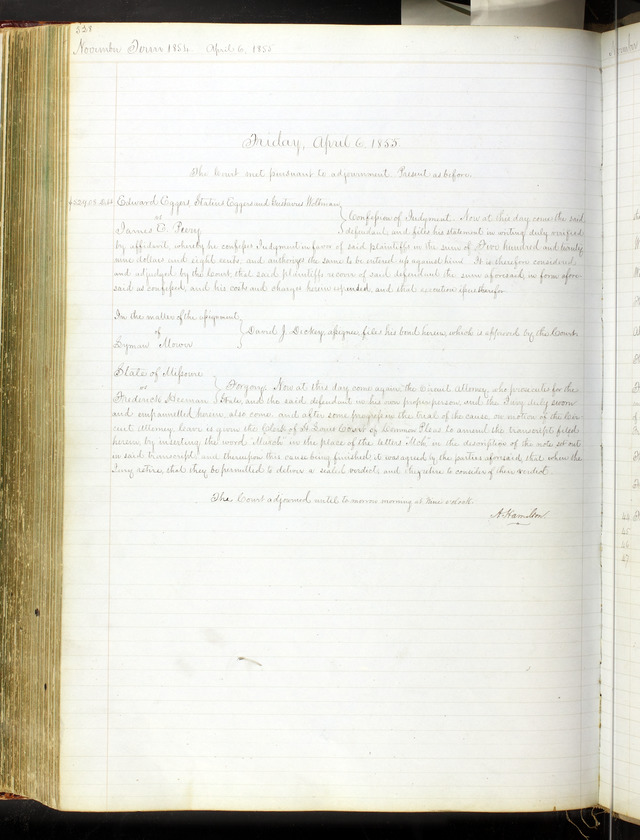 338
November Term 1854 April 6, 1855
Friday, April 6, 1855
The Court met pursuant to adjournment. Present as before.
$529.08 Debt Edward Eggers, Statius Eggers and Gustavus Woltman,
vs Confession of Judgment. Now at this day come the said
James C. Perry defendant, and files his statement in writing duly verified
by affidavit, whereby he confesses Judgment in favor of said plaintiffs in the sum of Five hundred and twenty
nine dollars and eight cents, and authorizes the same to be entered up against him. It is therefore considered
and adjudged by the Court, that said plaintiffs recover of said defendant the sum aforesaid, in form afore-
said as confessed, and his costs and charges herein expended, and that execution issue therefor.
In the matter of the assignment
of David J. Dickey, assignee, files his bond herein, which is approved by the Court.
Lyman Mower
State of Missouri
vs Forgery. Now at this day come again, the Circuit Attorney, who prosecutes for the
Frederick Heeman State, and the said defendant in his own proper person, and the Jury duly sworn
and empannelled herein, also come, and after some progress in the trial of the cause, on motion of the Cir-
cuit Attorney, leave is given the Clerk of St Louis Court of Common Pleas to amend the transcript filed
herein by inserting the word "March" in the place of the letters "Mch" in the description of the note set out
in said transcript; and thereupon this cause being finished, it was agreed by the parties aforesaid, that when the
Jury retires, that they be permitted to deliver a sealed verdict, and they retire to consider of their verdict.
The Court adjourned until to-morrow morning at Nine o'clock.
A. Hamilton
November
44
45
46
47